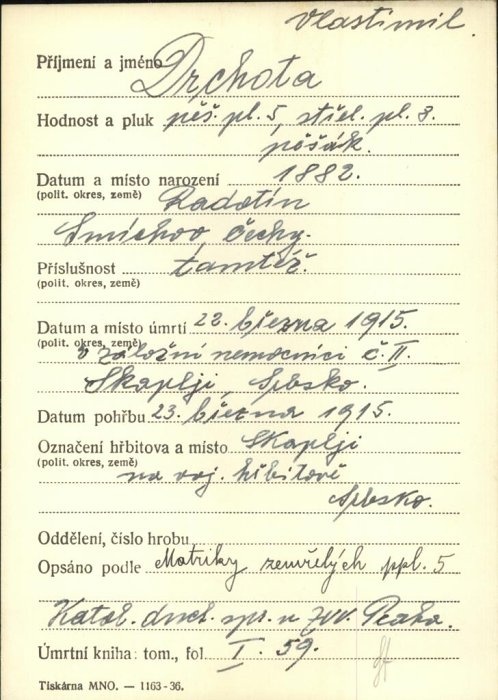 Vlastimil.
Příjmení a jméno Drchota
Hodnost a pluk pěš. pl. 5, střel. pl. 8.
pěšák.
Datum a místo narození 1882.
(polit. okres, země) Radotín
Smíchov Čechy.
Příslušnost tamtéž.
(polit. okres, země)
Datum a místo úmrtí 22. března 1915.
(polit. okres, země) v záložní nemocnici č. II.
Skoplji, Srbsko.
Datum pohřbu 23. března 1915.
Označení hřbitova a místo Skoplji
(polit. okres, země) na voj. hřbitově
Srbsko.
Oddělení, číslo hrobu
Opsáno podle Matriky zemřelých ppl. 5
Katol. duch. spr. u ZVV. Praha.
Úmrtní kniha: tom., fol. I. 59.
Tiskárna MNO. — 1163-36.